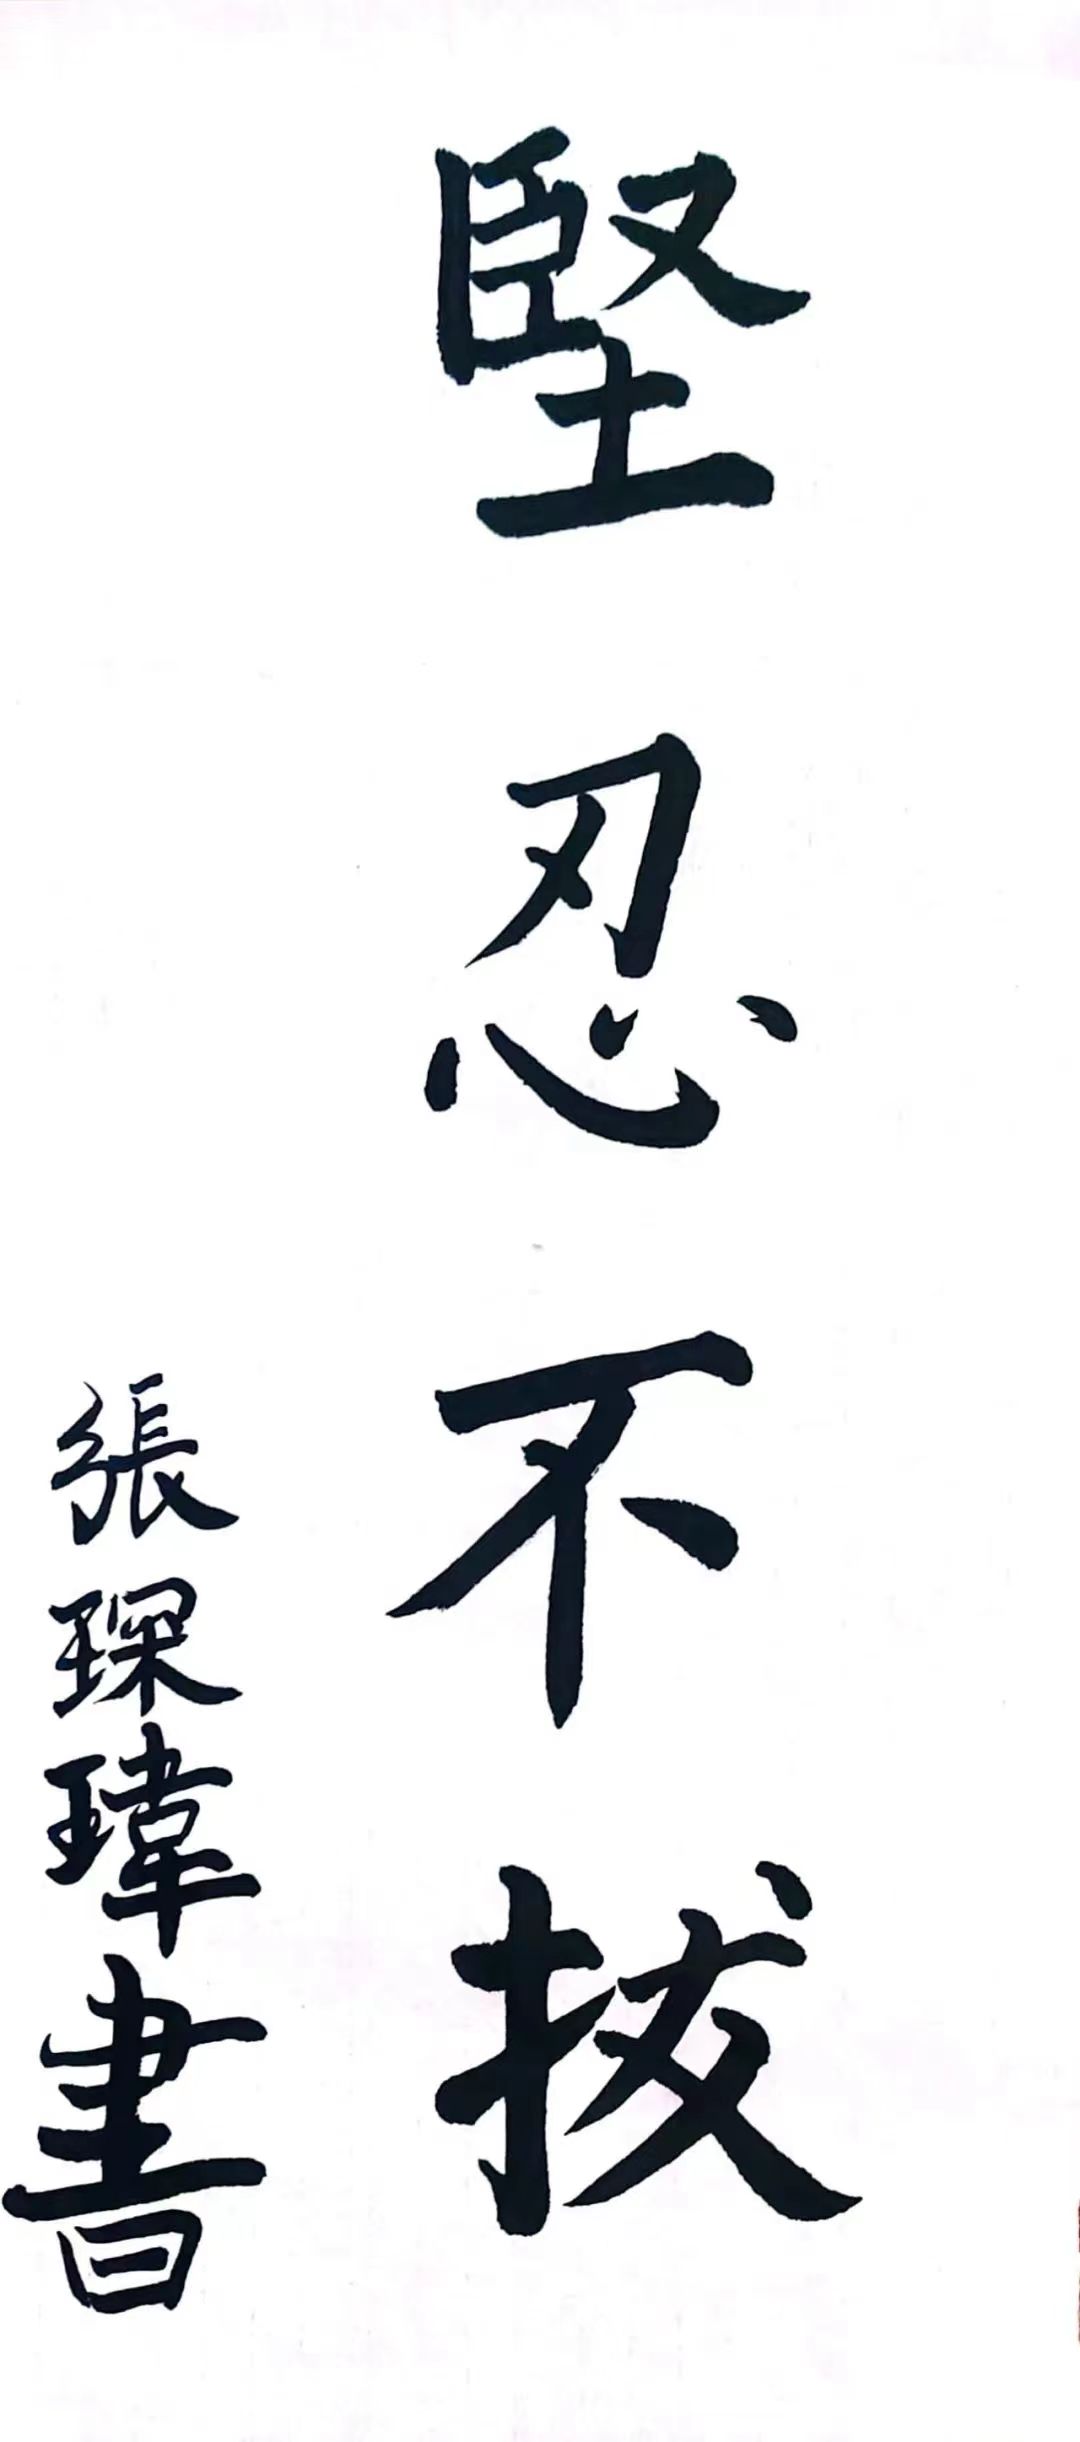 堅忍不拔
張琛瑋書